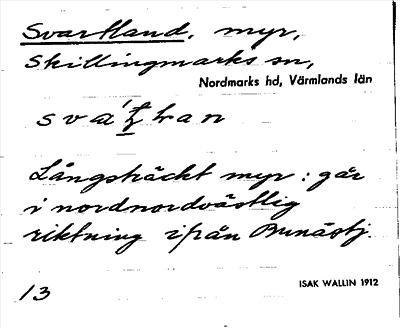 Svartland, myr,
Skillingmarks sn,
Nordmarks hd, Värmlands län
Långsträckt myr : går
i nordnordvästlig
riktning ifrån Bunästj.
13
ISAK WALLIN 1912